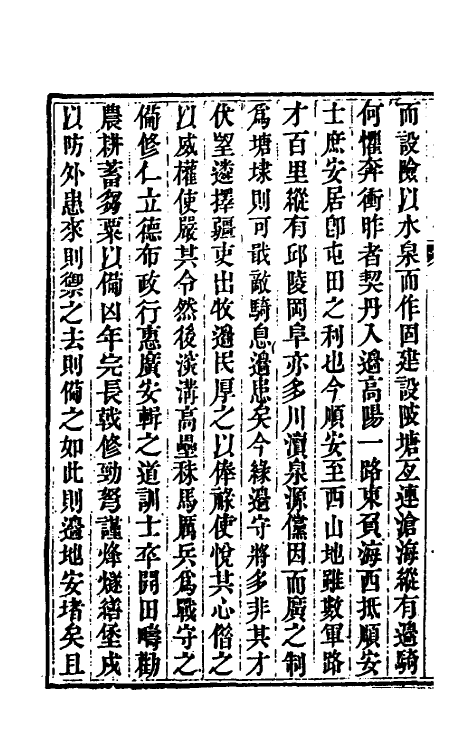 而設險以水泉而作固建設陂塘亙連滄海縱有邊騎
何懼奔衝昨者契丹入邊高陽一路東負海西抵順安
士庶安居卽屯田之利也今順安至西山地雖數軍路
才百里縱有邱陵岡阜亦多川瀆泉源儻因而廣之制
爲塘埭則可戢敵騎息邊患矣今緣邊守將多非其才
伏望遴擇疆吏出牧邊民厚之以俸祿使悅其心借之
以威權使嚴其令然後深溝高壘秣馬厲兵爲戰守之
備修仁立德布政行惠廣安輯之道訓士卒開田疇勸
農耕蓄芻粟以備凶年完長戟修勁弩謹烽燧繕堡戍
以防外患來則禦之去則備之如此則邊地安堵矣且